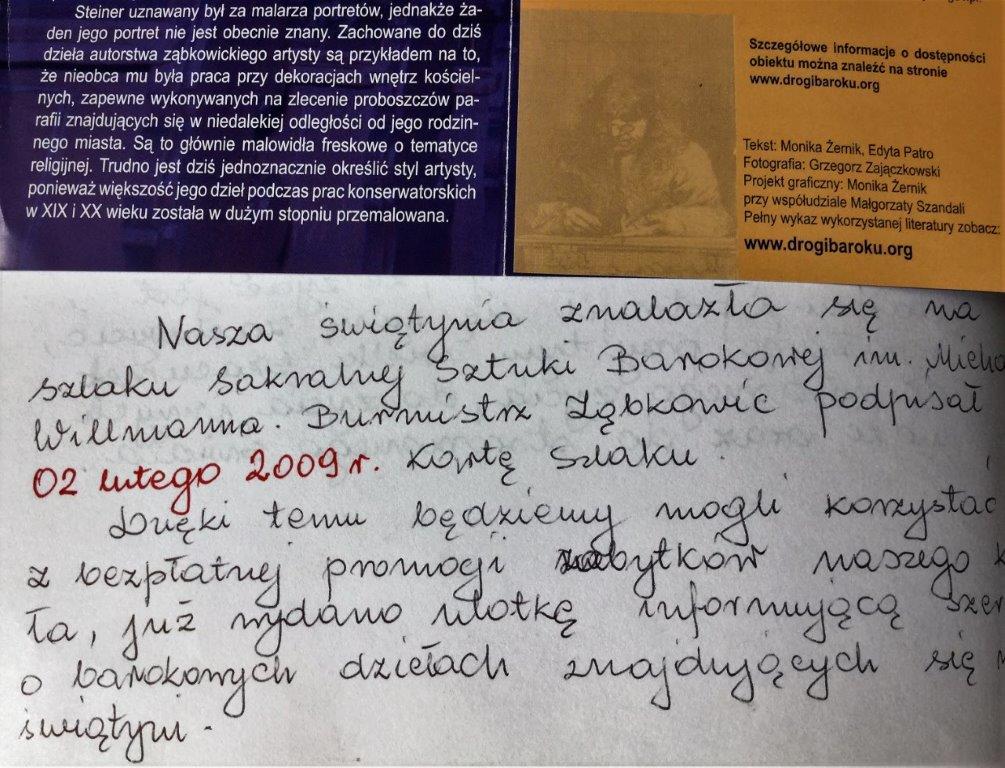 Steiner uznawany był za malarza portretów, jednakże ża-
den jego portret nie jest obecnie znany. Zachowane do dziś
dzieła autorstwa ząbkowickiego artysty są przykładem na to,
że nieobca mu była praca przy dekoracjach wnętrz kościel-
nych, zapewne wykonywanych na zlecenie proboszczów pa-
rafii znajdujących się w niedalekiej odległości od jego rodzin-
nego miasta. Są to głównie malowidła freskowe o tematyce
religijnej. Trudno jest dziś jednoznacznie określić styl artysty,
ponieważ większość jego dzieł podczas prac konserwatorskich
w XIX i XX wieku została w dużym stopniu przemalowana.
Szczegółowe informacje o dostępności
obiektu można znaleźć na stronie
www.drogibaroku.org
Tekst: Monika Żernik, Edyta Patro
Fotografia: Grzegorz Zajączkowski
Projekt graficzny: Monika Żernik
przy współudziale Małgorzaty Szandali
Pełny wykaz wykorzystanej literatury zobacz:
www.drogibaroku.org
Nasza świątynia znalazła się na
szlaku Sakralnej Sztuki Barokowej im. Micha
Willmanna. Burmistrz Ząbkowic podpisał
02 lutego 2009 r. Kartę Szlaku.
Dzięki temu będziemy mogli korzystać
z bezpłatnej promocji zabytków naszego
ła, już wydano ulotkę informującą szer
o barokowych dziełach znajdujących się
świątyni.